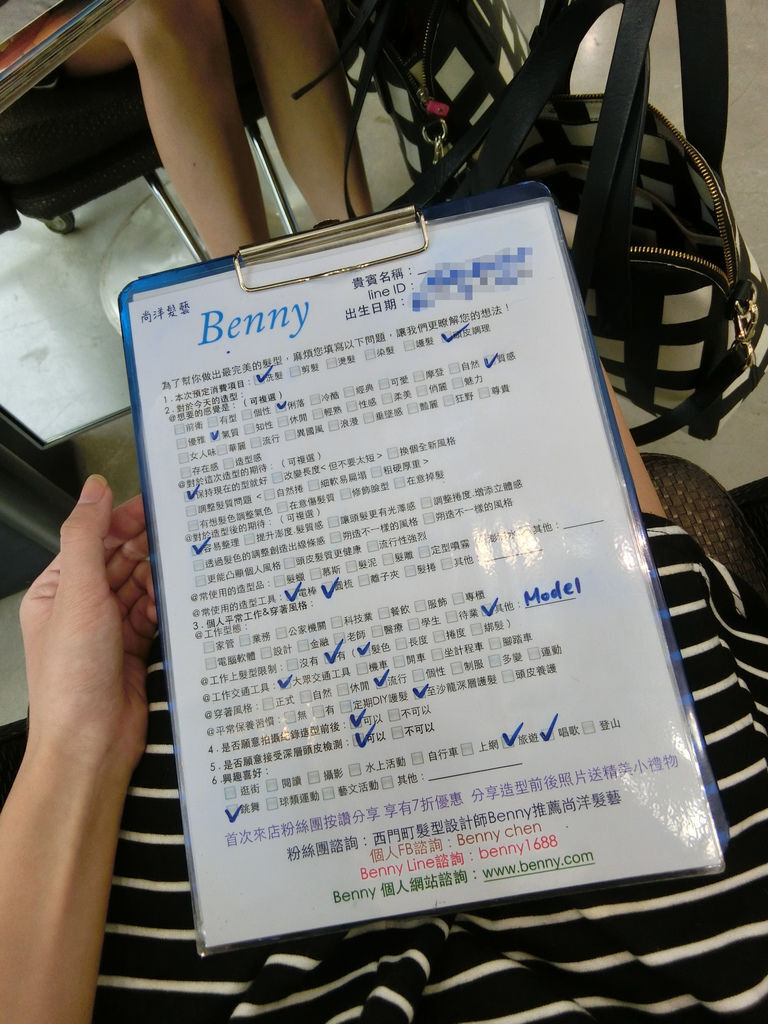 尚洋髮藝 Benny
貴賓名稱：
line ID：
出生日期：
為了幫你做出最完美的髮型，麻煩您填寫以下問題，讓我們更瞭解您的想法！
1．本次預定消費項目：洗髮 剪髮 燙髮 染髮 護髮 頭皮調理
2．對於今天的造型：(可複選)
@想要的感覺是：
前衛 有型 個性 俐落 冷酷 經典 可愛 摩登 自然 質感
優雅 氣質 知性 休閒 輕熟 性感 柔美 俏麗 魅力
女人味 華麗 流行 異國風 浪漫 垂墜感 豔麗 狂野 尊貴
存在感 造型感
@對於這次造型的期待：(可複選)
保持現在的型就好 改變長度<但不要太短> 換個全新風格
調整髮質問題 <自然捲 細軟易扁塌 粗硬厚重>
有想髮色調整氣色 在意傷髮質 修飾臉型 在意掉髮
@對於造型後的期待：(可複選)
容易整理 提升澎度.髮質感 讓頭髮更有光澤感 調整捲度.增添立體感
透過髮色的調整創造出線條感 朔造不一樣的風格 朔造不一樣的風格
更能凸顯個人風格 頭皮髮質更健康 流行性強烈
@常使用的造型品：髮蠟 慕斯 髮泥 髮雕 定型噴霧 其他：
@常使用的造型工具：電棒 圓梳 離子夾 髮捲 其他
3．個人平常工作&穿著風格：
@工作型態：
家管 業務 公家機關 科技業 餐飲 服飾 專櫃
電腦軟體 設計 金融 老師 醫療 學生 待業 其他：Model
@工作上髮型限制：沒有 有 (髮色 長度 捲度 綁髮)
@工作交通工具：大眾交通工具 機車 開車 坐計程車 腳踏車
@穿著風格：正式 自然 休閒 流行 個性 制服 多變 運動
@平常保養習慣：無 有 定期DIY護髮 至沙龍深層護髮 頭皮養護
4．是否願意拍攝紀錄造型前後：可以 不可以
5．是否願意接受深層頭皮檢測：可以 不可以
6．興趣喜好：
逛街 閱讀 攝影 水上活動 自行車 上網 旅遊 唱歌 登山
跳舞 球類運動 藝文活動 其他：
首次來店粉絲團按讚分享 享有7折優惠 分享造型前後照片送精美小禮物
粉絲團諮詢：西門町髮型設計師Benny推薦尚洋髮藝
個人FB諮詢：Benny chen
Benny Line諮詢：benny1688
Benny 個人網站諮詢：www.benny.com